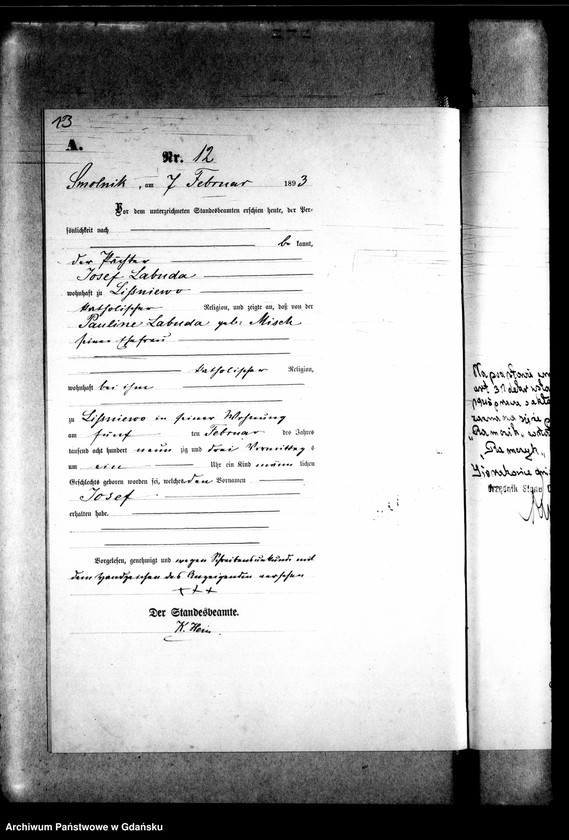 13
A.
Nr. 12
Smolnik, am 7 Februar 1893
Vor dem unterzeichneten Standesbeamten erschien heute, der Per-
sönlichkeit nach
be kannt,
der Pächter
Josef Labuda
wohnhaft zu Lißniewo
katholischer Religion, und zeigte an, daß von der
Pauline Labuda geb: Misch
seiner Ehefrau
katholischer Religion,
wohnhaft bei ihm
zu Lißniewo in seiner Wohnung
am fünf ten Februar des Jahres
tausend acht hundert neun zig und drei Vormittag s
um ein Uhr ein Kind männ lichen
Geschlechts geboren worden sei, welches den Vornamen
Josef
erhalten habe.
Vorgelesen, genehmigt und wegen Schreibensunkunde mit
dem Handzeichen des Anzeigenden versehen
+++
Der Standesbeamte.
K. Hein.
Na podstawie
art. 31 dekr.
1945 prawa o
"Pamerik,
"Pameryk"
Sierakowice
Urzędnik Stanu
Archiwum Państwowe w Gdańsku